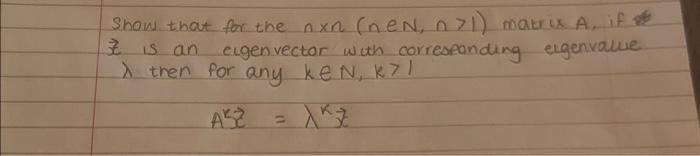 Show that for the n×n (n∈N, n>1) matrix A, if
z⃗ is an eigenvector with corresponding eigenvalue
λ then for any k∈N, k>1
Aᵏz⃗ = λᵏz⃗